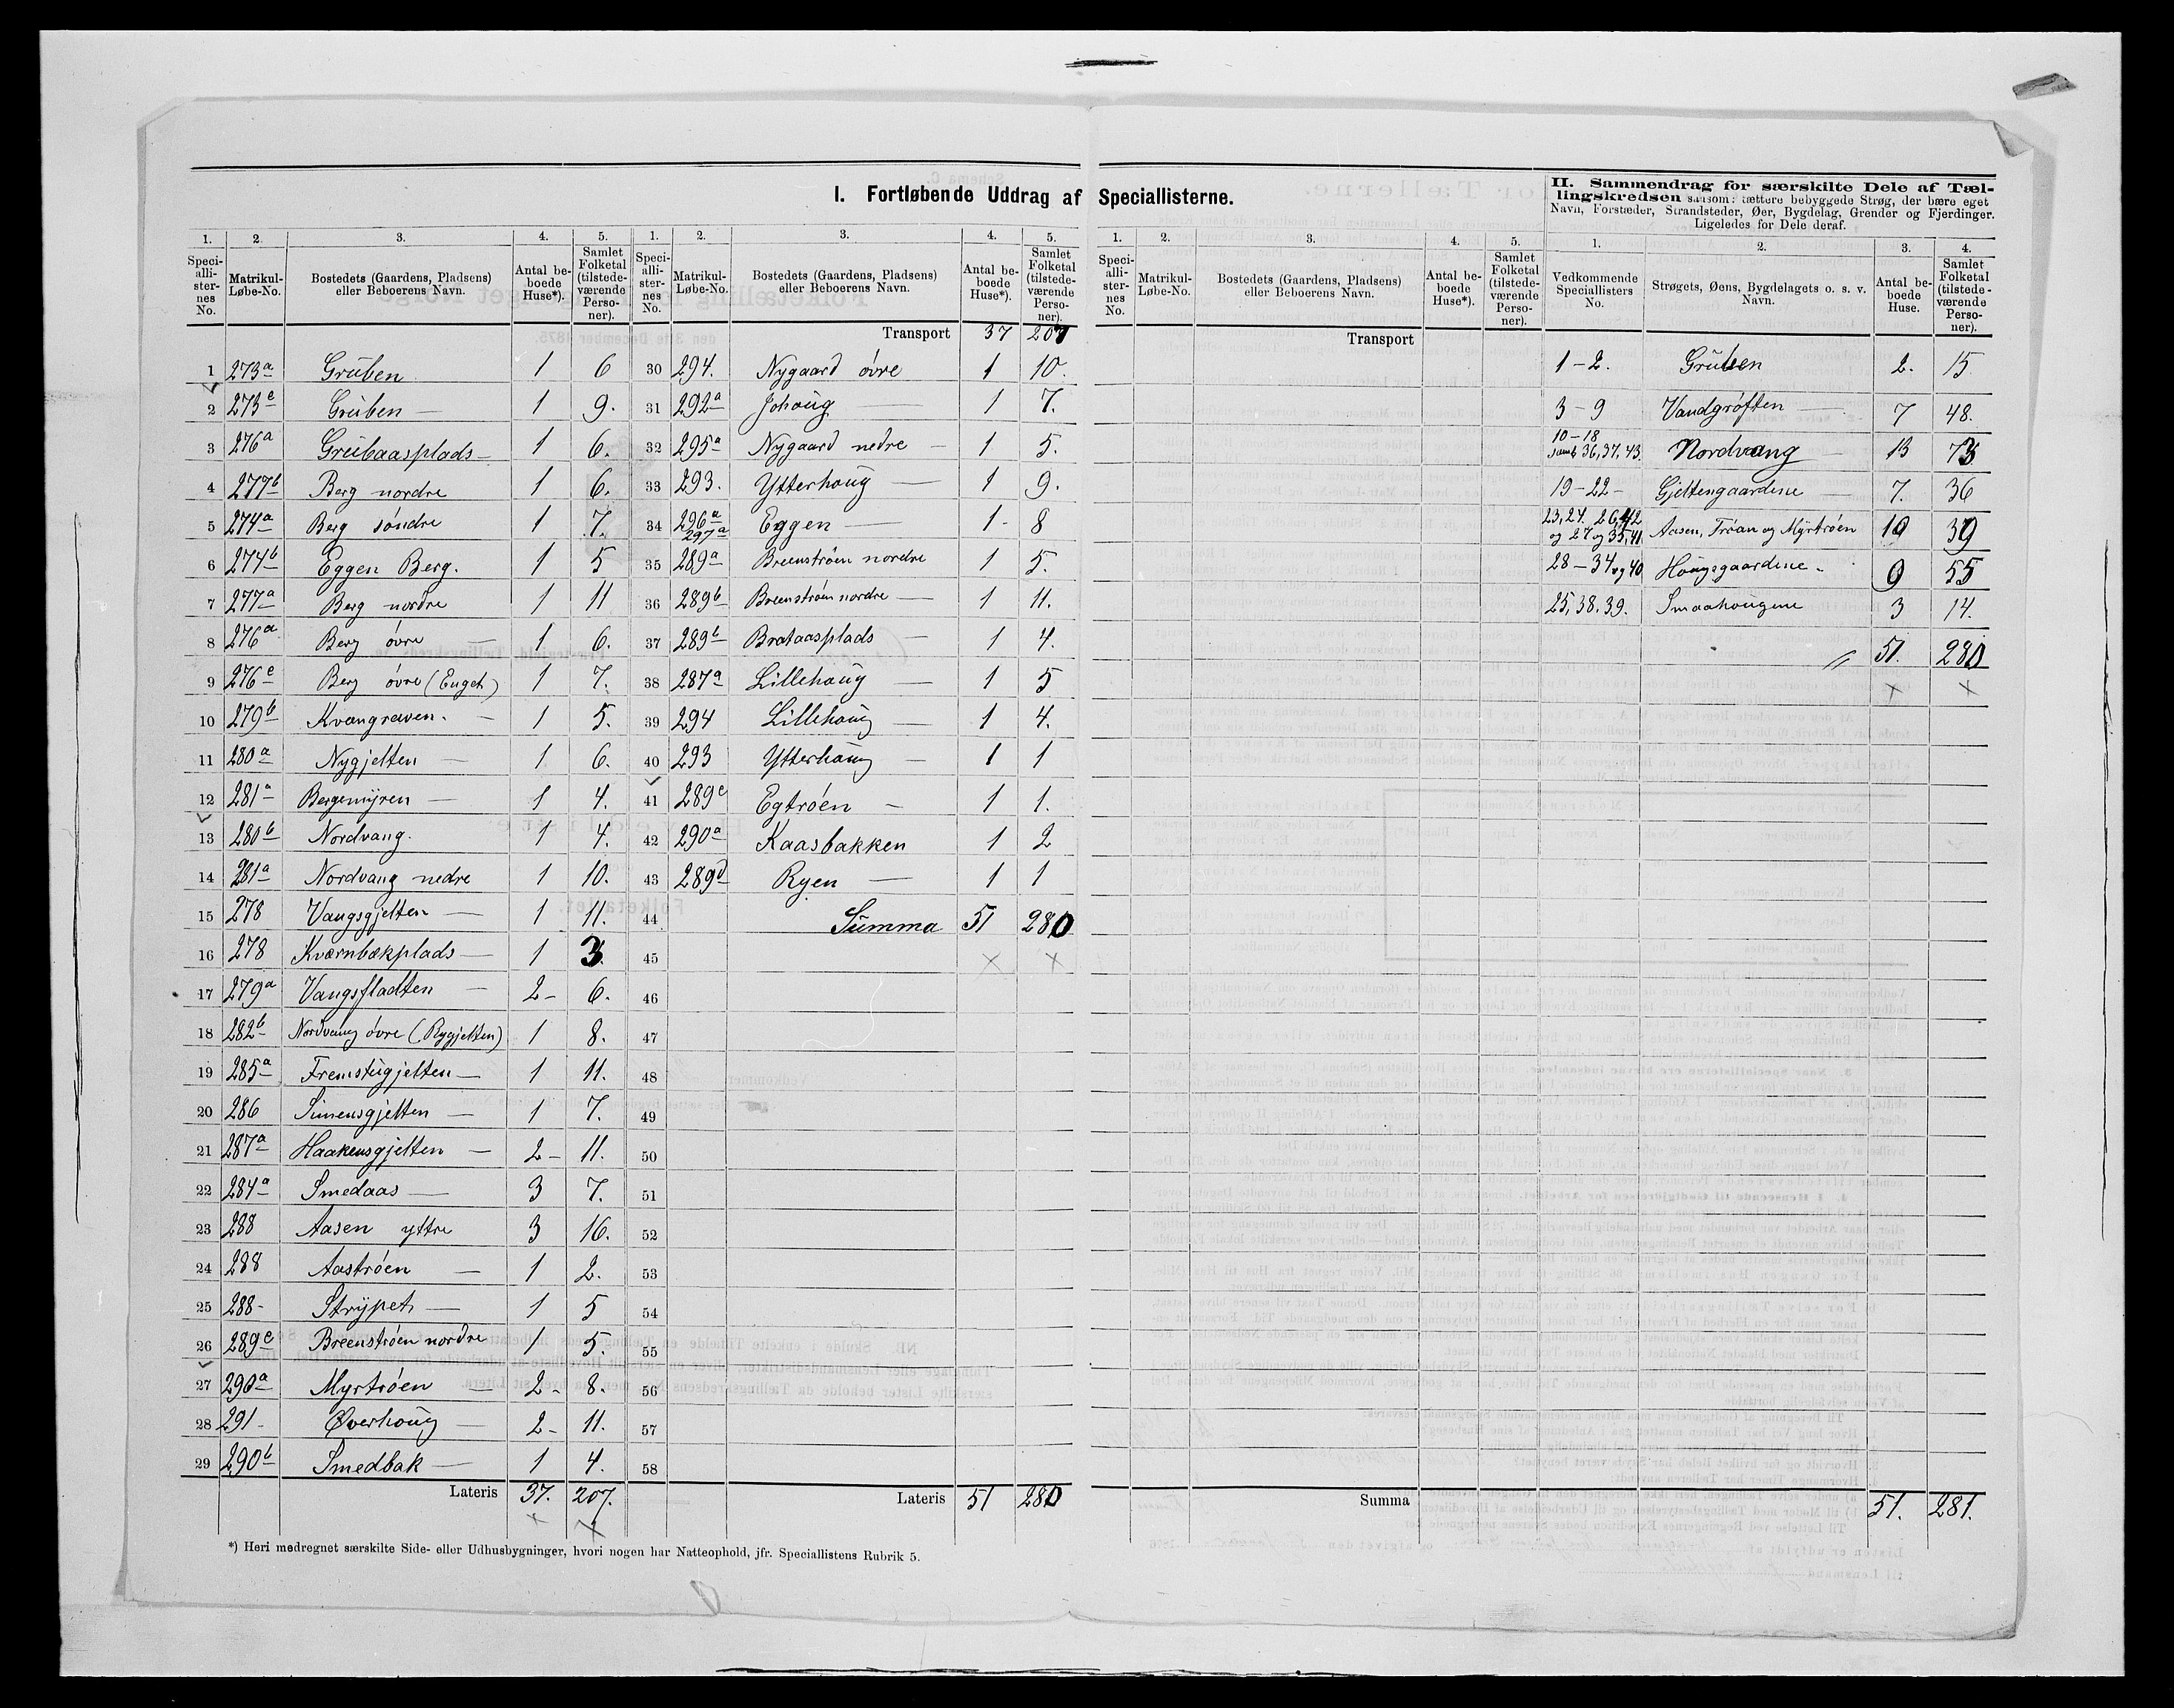 I. Fortløbende Uddrag af Speciallisterne.
II. Sammendrag for særskilte Dele af Tællingskredsen saasom: tættere bebyggede Strøg, der bære eget
Navn, Forstæder, Strandsteder, Øer, Bygdelag, Grender og Fjerdinger.
Ligeledes for Dele deraf.
1. 2. 3. 4. 5.
Speciallisternes No. Matrikul-Løbe-No. Bostedets (Gaardens, Pladsens) eller Beboerens Navn. Antal beboede Huse*). Samlet Folketal (tilstedeværende Personer).
1 273a Gruben 1 6
2 273c Gruben — 1 9.
3 276a Grubaasplads — 1 6.
4 277b Berg nordre 1 6.
5 274a Berg söndre 1 7.
6 274b Eggen Berg. 1 5
7 277a Berg nordre 1 11
8 276a Berg övre — 1 6.
9 276c Berg övre (Enget) 1 7.
10 279b Kvangraven. — 1 5.
11 280a Nygjelten — 1 6.
12 281a Bergemyren — 1 4.
13 280b Nordvang. 1 4.
14 281a Nordvang nedre 1 10.
15 278 Vangsgjelten — 1 11.
16 278 Kværnbækplads — 1 3.
17 279a Vangsfladten — 2 - 6.
18 282b Nordvang övre (Rygjelten) 1 8.
19 285a Fremstugjelten — 1 11.
20 286 Simensgjelten — 1 7.
21 287a Haakensgjelten — 2 - 11.
22 284a Smedaas — 3 7.
23 288 Aasen yttre 3 16.
24 288 Aaströen — 1 2.
25 288 - Strypet — 1 5
26 289c Breenströen nordre 1 5.
27 290a Myrtröen — 2 - 8.
28 291 - Øverhoug — 2 - 11.
29 290b Smedbak — 1 4.
Lateris 37. 207.
1. 2. 3. 4. 5.
Speciallisternes No. Matrikul-Løbe-No. Bostedets (Gaardens, Pladsens) eller Beboerens Navn. Antal beboede Huse*). Samlet Folketal (tilstedeværende Personer).
Transport 37 207
30 294. Nygaard övre 1 10.
31 292a Johoug — 1 7.
32 295a Nygaard nedre — 1 5.
33 293. Ytterhoug — 1 9.
34 296a 297a Eggen — 1 - 8
35 289a Breenströen nordre 1 5.
36 289b Breenströen nordre — 1 11.
37 289b Brataasplads — 1 4.
38 287a Lillehoug — 1 5
39 294 Lillehoug — 1 4.
40 293 Ytterhoug — 1 1
41 289c Egtröen — 1 1.
42 290a Kaasbakken 1 2
43 289d Ryen — 1 1
44 Summa 51 280
45
46
47
48
49
50
51
52
53
54
55
56
57
58
Lateris 51 280
1. 2. 3. 4. 5.
Speciallisternes No. Matrikul-Løbe-No. Bostedets (Gaardens, Pladsens) eller Beboerens Navn. Antal beboede Huse*). Samlet Folketal (tilstedeværende Personer).
Transport
Summa
1. 2. 3. 4.
Vedkommende Speciallisters No. Strøgets, Øens, Bygdelagets o. s. v. Navn. Antal beboede Huse. Samlet Folketal (tilstedeværende Personer).
1 - 2. Gruben 2. 15.
3 - 9 Vandgröften — 7 48.
10 - 18 samt 36, 37, 43. Nordvang — 13 73
19 - 22 - Gjeltengaardene — 7. 36
23, 24. 26, 42 og 27 og 35, 41 Aasen, Tröan og Myrtröen 10 39
28 - 34 og 40 Hougsgaardene - 9 55
25, 38, 39. Smaahougene 3 14.
51. 280
51. 281.
*) Heri medregnet særskilte Side- eller Udhusbygninger, hvori nogen har Natteophold, jfr. Speciallistens Rubrik 5.